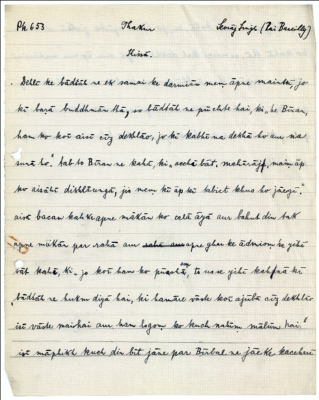 PK 653 Thakur Singh (Rai Bareilly)
Hissā.
Dehlī ke bādśāh ne ek samai ke darmiān mem apne
kī baṛā buddhimān thā, so bādśāh ne pūchte hai, ki, he Bīran,
ham ko koī aisī cīz dekhlāo, jo kī kabhī na dekhā ho aur na
sunā ho". Tab to Bīran ne kahā, ki "acchā bāt, mehārāj, maim āp
ko aisāhī dikhlāumgā, jis mem kī āp kī tabiet khus ho jāegī."
aisā bacan kahkar apne mākān ko celā āyā aur bahut din tak
apne mākān par rahā aur apne ghar ke ādmiom se yehī
bāt kahā, ki "jo koī ham ko pūche, to us se yehī kahnā kī
"bādśāh ne hukm diyā hai, ki hamāre vāste koī ajūbā cīz dekhlāo
isī vāste aur ham logom ko kuch nahīm mālūm hai."
isī kuch din bīt jāne par Bīrbal ne kacehrī